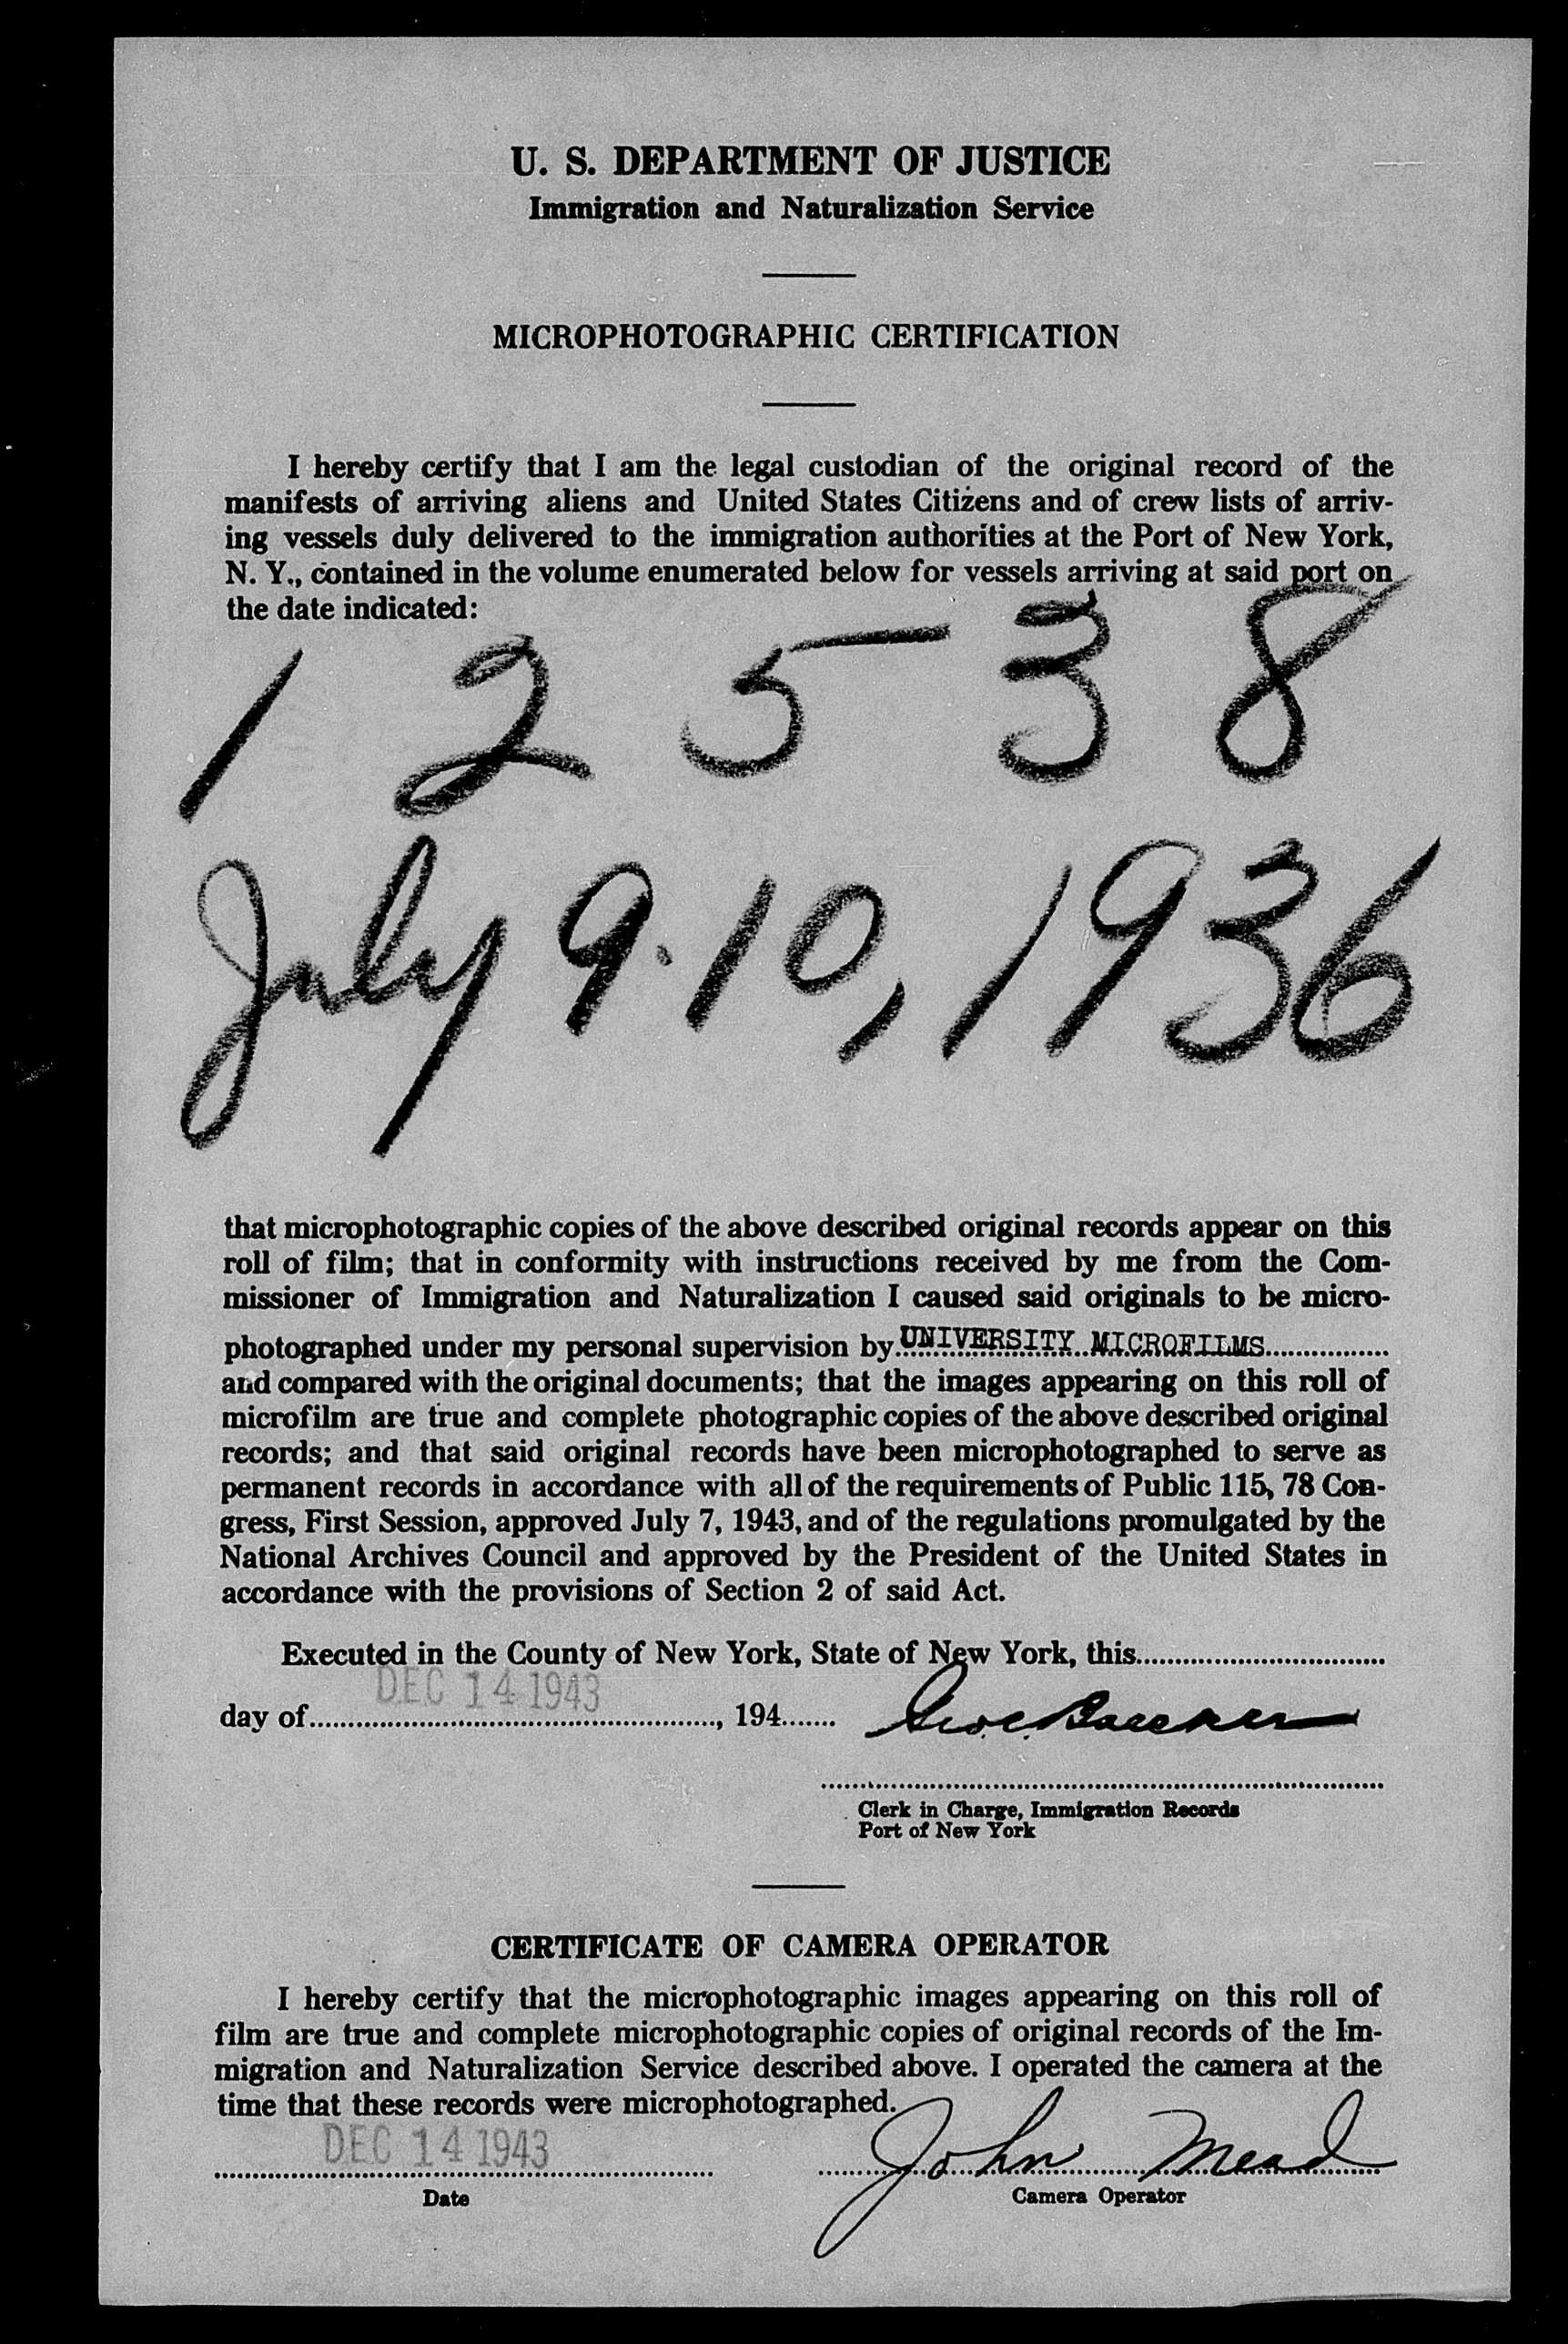 U. S. DEPARTMENT OF JUSTICE
Immigration and Naturalization Service
MICROPHOTOGRAPHIC CERTIFICATION
I hereby certify that I am the legal custodian of the original record of the
manifests of arriving aliens and United States Citizens and of crew lists of arriv-
ing vessels duly delivered to the immigration authorities at the Port of New York,
N. Y., contained in the volume enumerated below for vessels arriving at said port on
the date indicated:
1 2 5 3 8
July 9-10, 1936
that microphotographic copies of the above described original records appear on this
roll of film; that in conformity with instructions received by me from the Com-
missioner of Immigration and Naturalization I caused said originals to be micro-
photographed under my personal supervision by UNIVERSITY MICROFILMS
and compared with the original documents; that the images appearing on this roll of
microfilm are true and complete photographic copies of the above described original
records; and that said original records have been microphotographed to serve as
permanent records in accordance with all of the requirements of Public 115, 78 Con-
gress, First Session, approved July 7, 1943, and of the regulations promulgated by the
National Archives Council and approved by the President of the United States in
accordance with the provisions of Section 2 of said Act.
Executed in the County of New York, State of New York, this
DEC 14 1943
day of , 194
Clerk in Charge, Immigration Records
Port of New York
CERTIFICATE OF CAMERA OPERATOR
I hereby certify that the microphotographic images appearing on this roll of
film are true and complete microphotographic copies of original records of the Im-
migration and Naturalization Service described above. I operated the camera at the
time that these records were microphotographed.
DEC 14 1943 John Mead
Date Camera Operator